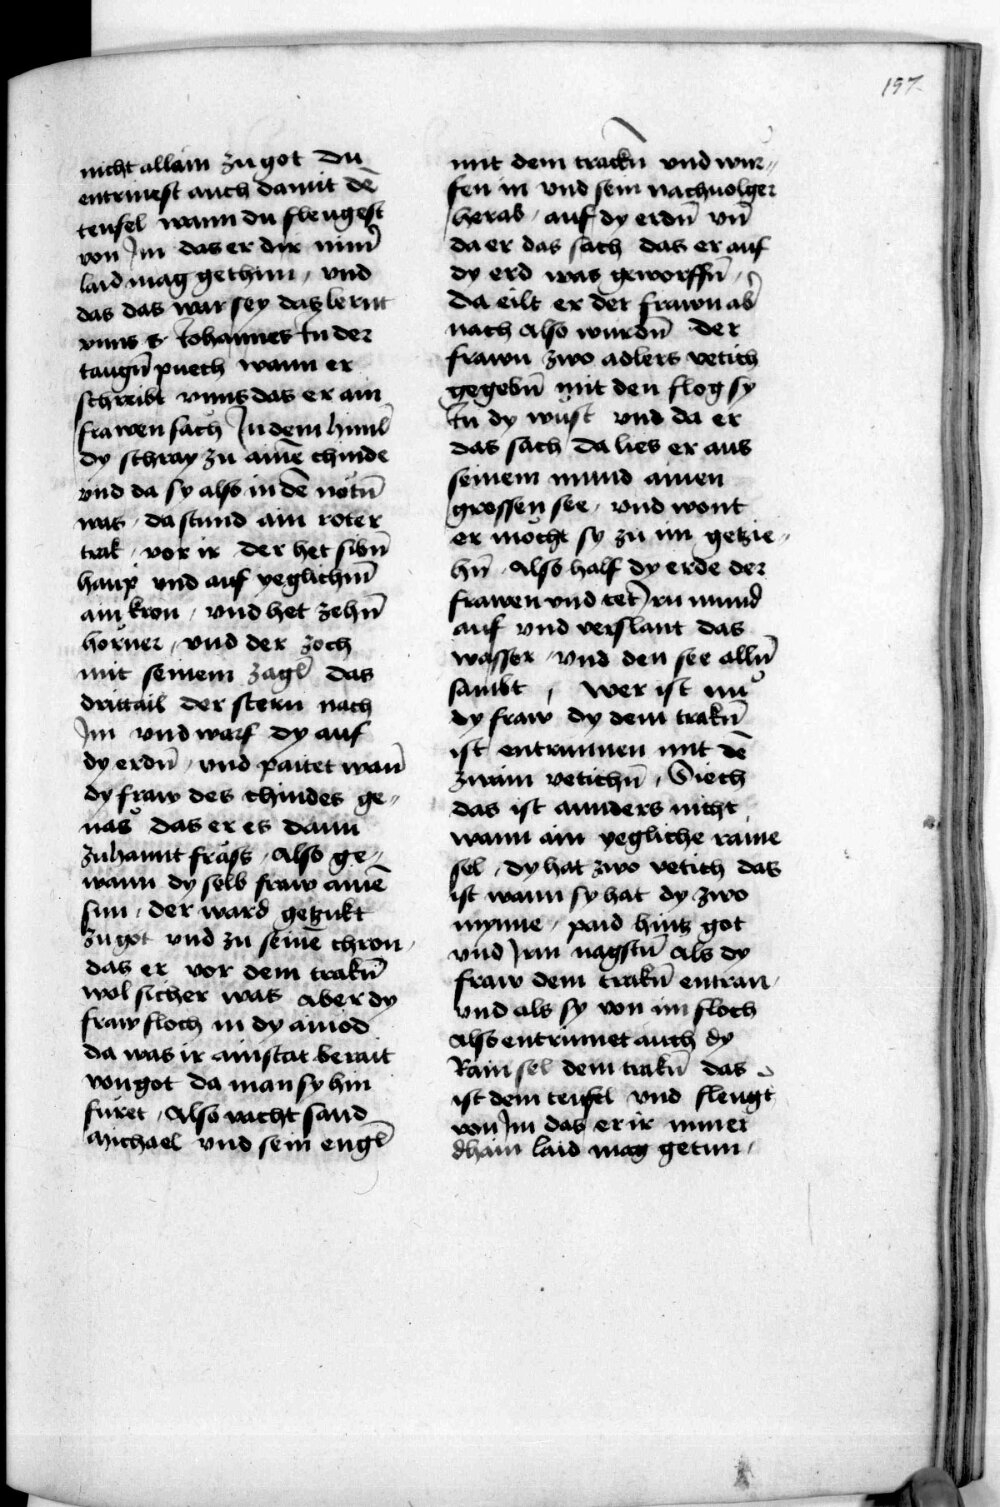 197
nicht allain zu got du
entrinest auch damit dē
teufel wann du fleugest
von Im das er dir nim̄
laid mag gethun / vnd
das das war sey das lernt
vnns s Johannes In der
taugn̄ puech wann er
schreibt vnns das er ain
frawen sach In dem himl̄
dy schray zu ainē chinde
vnd da sy also in dē notn̄
was / da stund ain roter
trak / vor ir der het sibn̄
haup vnd auf yeglichm̄
ain kron / vnd het zehn̄
horner / vnd der zoch
mit seinem zagl̄ das
drittail der stern nach
Im vnd warf dy auf
dy erdn̄ / vnd paitet wan̄
dy fraw des chindes ge〃
nas das er es dann
zuhannt frass / Also ge〃
wann dy selb fraw ainē
sun / der ward getzukt
zu got vnd zu seinē chron /
das er vor dem trakn̄
wol sicher was Aber dy
fraw floch in dy ainod
da was ir ain stat berait
von got da man sy hin
furet / Also vacht sand
Michael vnd sein engl̄
mit dem trackn̄ vnd wur〃
fen in vnd sein nachuolger
herab / auf dy erdn̄ vn̄
da er das sach das er auf
dy erd was geworffn̄ /
da eilt er der frawn ab̄
nach Also wurdn̄ der
frawn zwo adlers vetich
gegebn̄ mit den flog sy
In dy wust vnd da er
das sach da lies er aus
seinem mund ainen
grossen see / vnd wont
er mocht sy zu im getzie〃
hn̄ / Also half dy erde der
frawen vnd tet Irn mund
auf vnd verslant das
wasser / vnd den see alln̄
sambt / wer ist nu
dy fraw dy dem trakn̄
ist entrunnen mit dē
zwain vetichn̄ / Siech
das ist annders nicht
wann ain yegliche raine
sel / dy hat zwo vetich das
ist wann sy hat dy zwo
mynne / paid hintz got
vnd Irm nagstn̄ Als dy
fraw dem trakn̄ entran /
vnd als sy von im floch
Also entrinnet auch dy
Rain sel dem trakn̄ das
ist dem teufel vnd fleugt
von Im das er ir nimer
dhain laid mag getun /